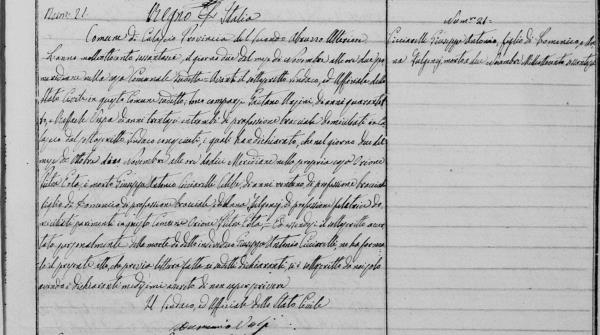 Num. 21.
Regno d'Italia
Comune di Calascio Provincia del Secondo Abruzzo Ulteriore
L'anno milleottocento sessantasei, il giorno due del mese di Novembre alle ore due po-
meridiane nella casa Comunale Innanti a me sottoscritto Sindaco, ed Uffiziale dello
Stato Civile in questo Comune suddetto, sono comparsi, Gaetano di anni quarantot-
to, e Raffaele di anni trentasei entrambi di professione braciale domiciliati in Ca-
lascio del sottoscritto Sindaco conosciuti, i quali han dichiarato, che nel giorno due del
mese di Novembre alle ore dodici Meridiane nella propria casa Rione
è morto Giuseppe Antonio Cicciarelli Celibe, di anni ventuno di professione braciale
figlio di Domenico di professione braciale e di Anna Fulgenzi, di professione filatrice do-
miciliati parimenti in questo Comune Rione Ed essendosi il sottoscritto accer-
tato personalmente della morte di detto individuo Giuseppe Antonio Cicciarelli, ne ha forma-
to il presente atto, che previa lettura fatta ai suddetti dichiaranti, si è sottoscritto da noi solo
avendo i dichiaranti medesimi asserito di non saper scrivere
Il Sindaco, ed Uffiziale dello Stato Civile
Domenico
Num.° 21.
Cicciarelli Giuseppe Antonio, figlio di Domenico, e An-
na Fulgenzi, morto a due Novembre Milleottocento sessantasei